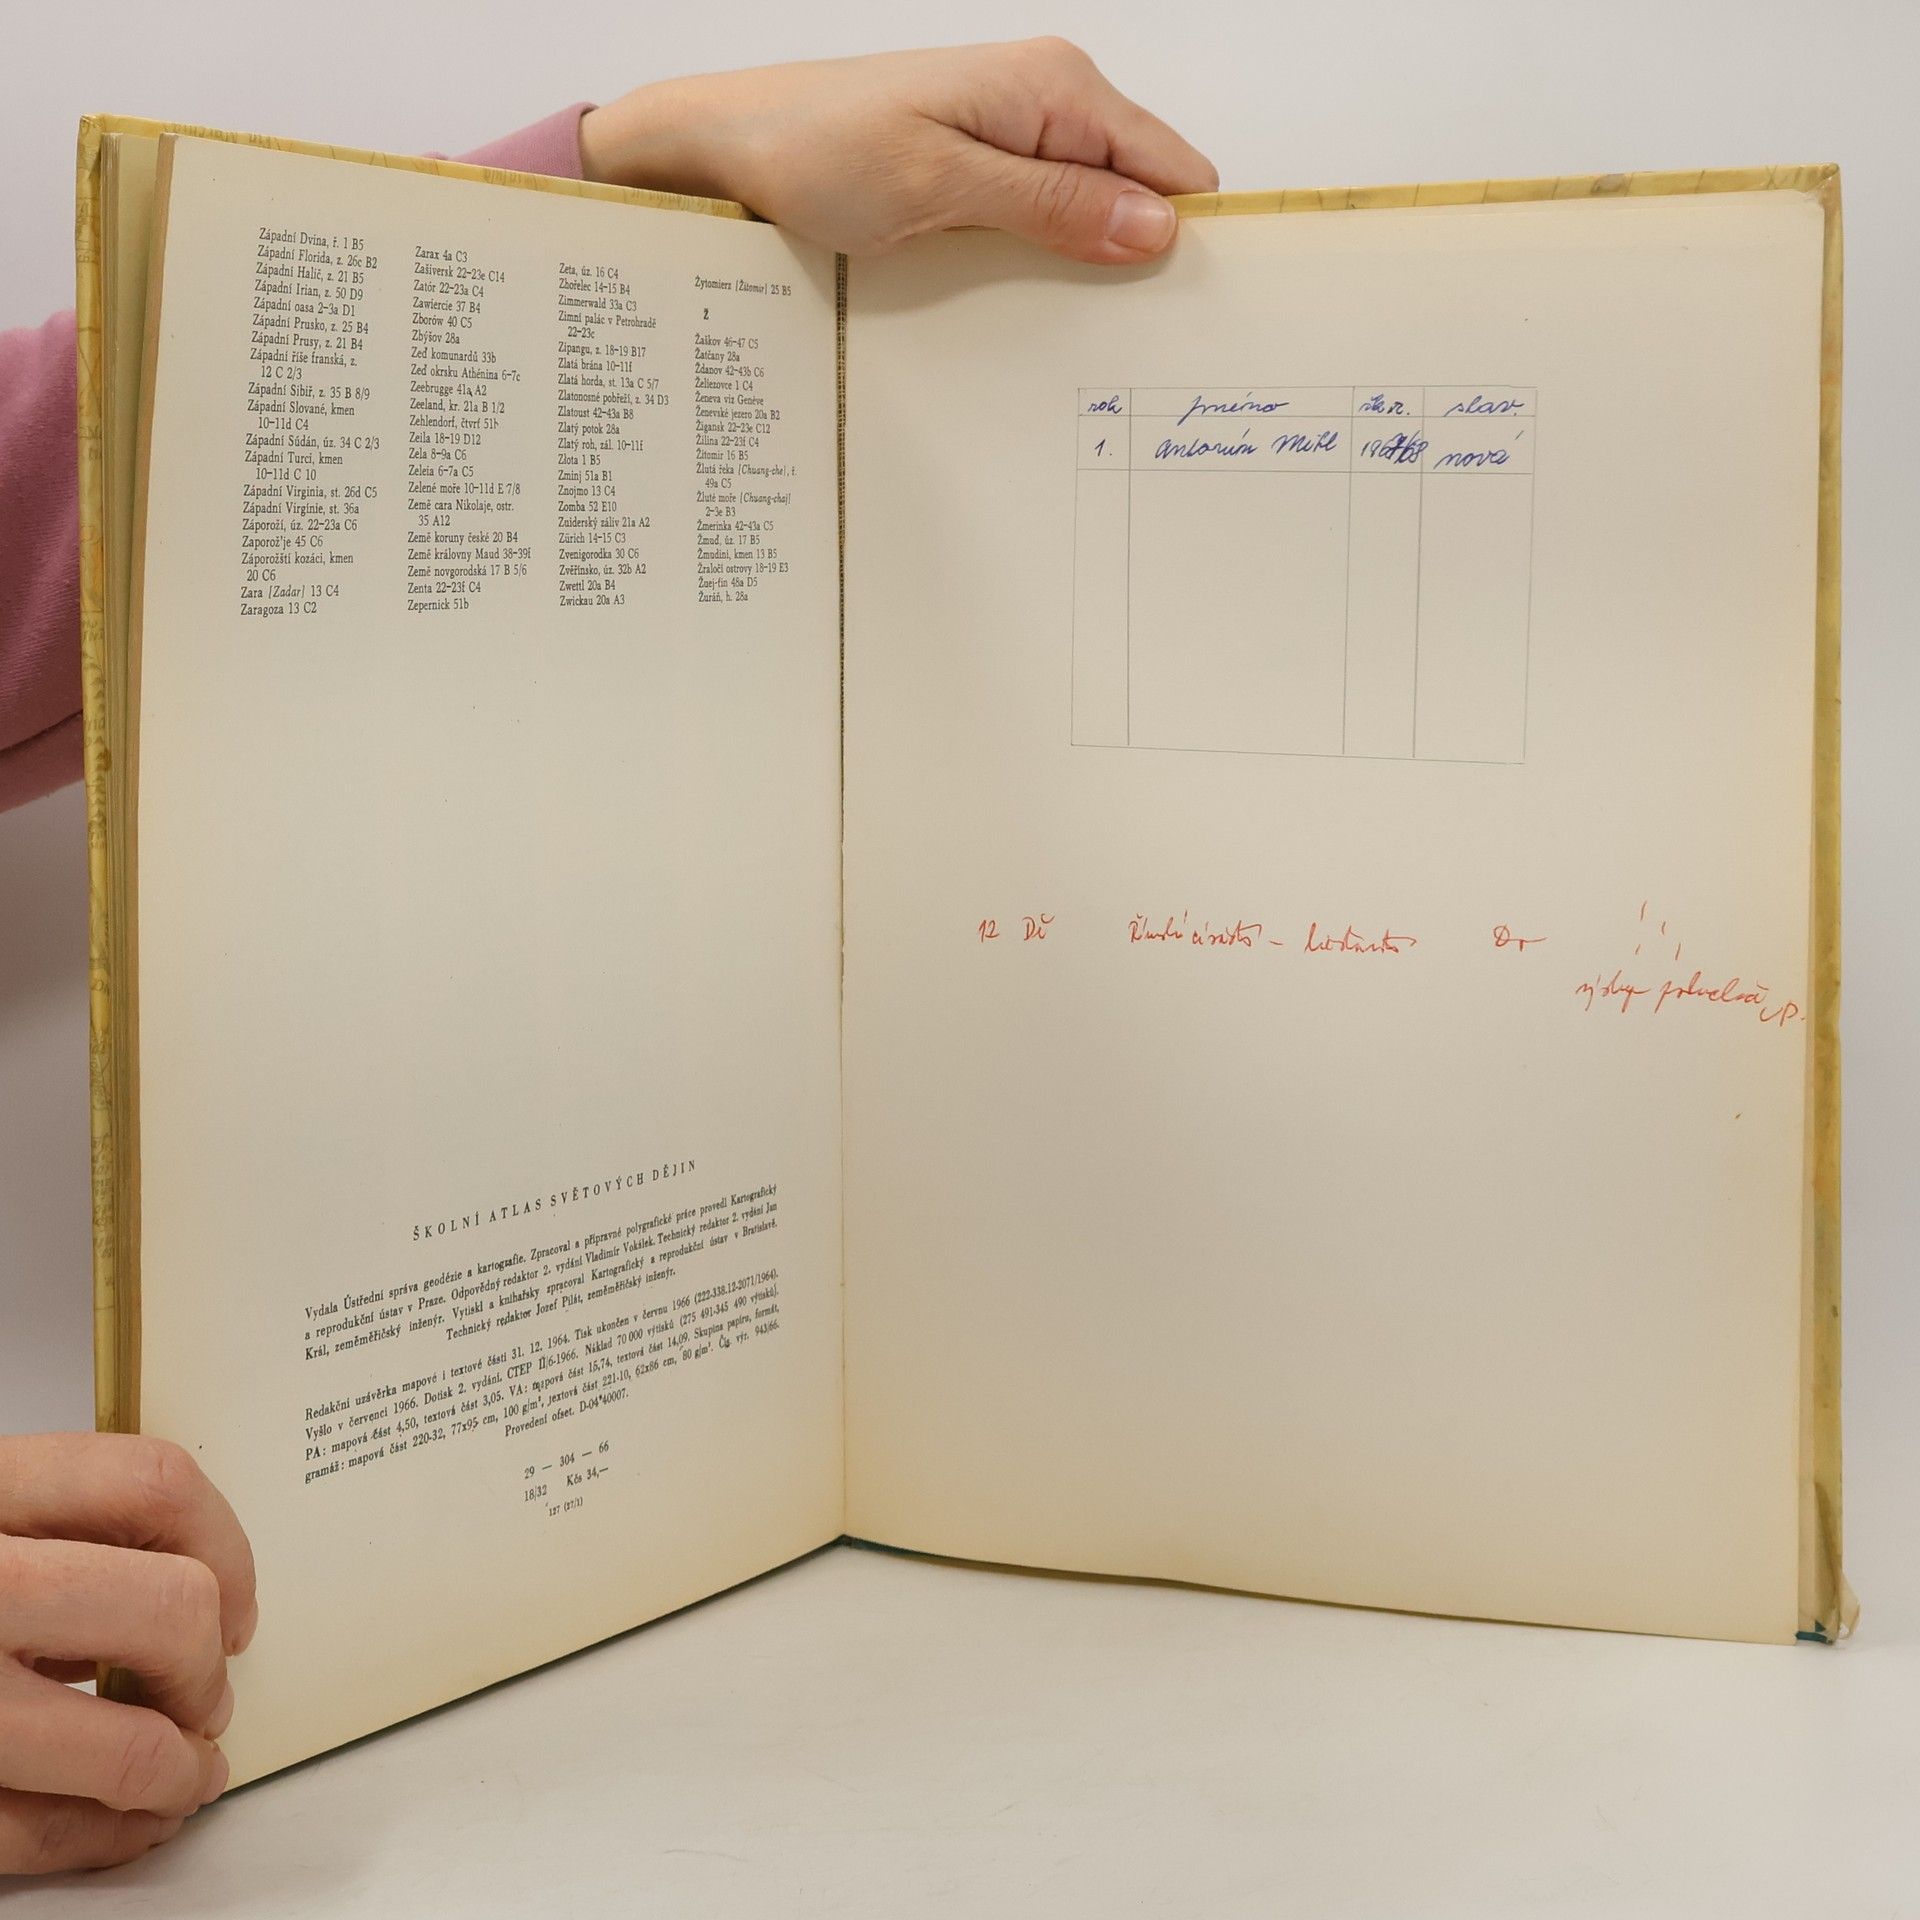 Západní Dvina, ř. 1 B5
Západní Florida, z. 26c B2
Západní Halič, z. 21 B5
Západní Irian, z. 50 D9
Západní oasa 2-3a D1
Západní Prusko, z. 25 B4
Západní Prusy, z. 21 B4
Západní říše franská, z.
12 C 2/3
Západní Sibiř, z. 35 B 8/9
Západní Slované, kmen
10-11d C4
Západní Súdán, úz. 34 C 2/3
Západní Turci, kmen
10-11d C 10
Západní Virginia, st. 26d C5
Západní Virginie, st. 36a
Záporoží, úz. 22-23a C6
Zaporož'je 45 C6
Záporožští kozáci, kmen
20 C6
Zara [Zadar] 13 C4
Zaragoza 13 C2
Zarax 4a C3
Zašiversk 22-23e C14
Zatór 22-23a C4
Zawiercie 37 B4
Zborów 40 C5
Zbýšov 28a
Zeď komunardů 33b
Zeď okrsku Athénina 6-7c
Zeebrugge 41a A2
Zeeland, kr. 21a B 1/2
Zehlendorf, čtvrť 51b
Zeila 18-19 D12
Zela 8-9a C6
Zeleia 6-7a C5
Zelené moře 10-11d E 7/8
Země cara Nikolaje, ostr.
35 A12
Země koruny české 20 B4
Země královny Maud 38-39f
Země novgorodská 17 B 5/6
Zenta 22-23f C4
Zepernick 51b
Zeta, úz. 16 C4
Zhořelec 14-15 B4
Zimmerwald 33a C3
Zimní palác v Petrohradě
22-23c
Zipangu, z. 18-19 B17
Zlatá brána 10-11f
Zlatá horda, st. 13a C 5/7
Zlatonosné pobřeží, z. 34 D3
Zlatoust 42-43a B8
Zlatý potok 28a
Zlatý roh, zál. 10-11f
Złota 1 B5
Zminj 51a B1
Znojmo 13 C4
Zomba 52 E10
Zuiderský záliv 21a A2
Zürich 14-15 C3
Zvenigorodka 30 C6
Zvěřínsko, úz. 32b A2
Zwettl 20a B4
Zwickau 20a A3
Żytomierz [Žitomir] 25 B5
Ž
Žaškov 46-47 C5
Žatčany 28a
Ždanov 42-43b C6
Želiezovce 1 C4
Ženeva viz Genève
Ženevské jezero 20a B2
Žigansk 22-23e C12
Žilina 22-23f C4
Žitomir 16 B5
Žlutá řeka [Chuang-che], ř.
49a C5
Žluté moře [Chuang-chaj]
2-3e B3
Žmerinka 42-43a C5
Žmuď, úz. 17 B5
Žmudini, kmen 13 B5
Žraločí ostrovy 18-19 E3
Žuej-ťin 48a D5
Žuráň, h. 28a
ŠKOLNÍ ATLAS SVĚTOVÝCH DĚJIN
Vydala Ústřední správa geodézie a kartografie. Zpracoval a přípravné polygrafické práce provedl Kartografický
a reprodukční ústav v Praze. Odpovědný redaktor 2. vydání Vladimír Vokálek. Technický redaktor 2. vydání Jan
Král, zeměměřičský inženýr. Vytiskl a knihařsky zpracoval Kartografický a reprodukční ústav v Bratislavě.
Technický redaktor Jozef Pilát, zeměměřičský inženýr.
Redakční uzávěrka mapové i textové části 31. 12. 1964. Tisk ukončen v červnu 1966 (222-338.12-2071/1964).
Vyšlo v červenci 1966. Dotisk 2. vydání. CTEP II/6-1966. Náklad 70 000 výtisků (275 491-345 490 výtisků).
PA: mapová část 4,50, textová část 3,05. VA: mapová část 15,74, textová část 14,09. Skupina papíru, formát,
gramáž: mapová část 220-32, 77x95 cm, 100 g/m², textová část 221-10, 62x86 cm, 80 g/m². Čís. výr. 943/66.
Provedení ofset. D-04*40007.
29 — 304 — 66
18/32 Kčs 34,—
127 (27/1)
rok jméno šk. r. stav.
1. Antonín Mikl 1967/68 nová
12 Dě Římské císařství - Dr